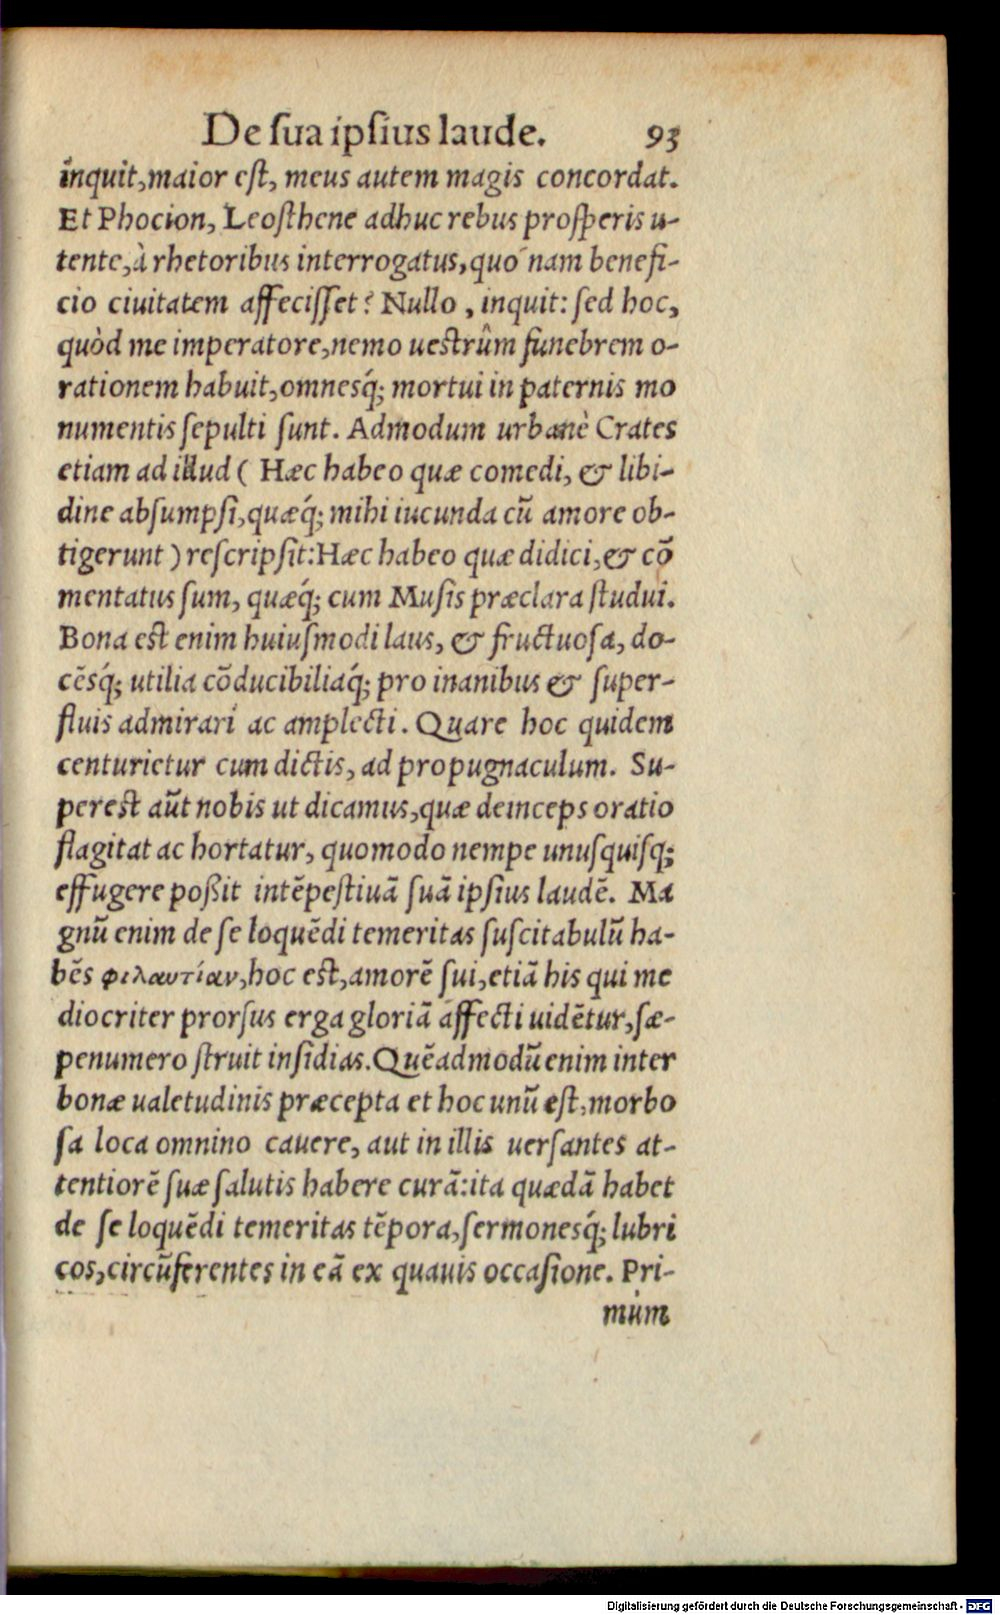 De sua ipsius laude. 93
inquit, maior est, meus autem magis concordat.
Et Phocion, Leosthene adhuc rebus prosperis u-
tente, à rhetoribus interrogatus, quo nam benefi-
cio ciuitatem affecisset? Nullo, inquit: sed hoc,
quòd me imperatore, nemo uestrûm funebrem o-
rationem habuit, omnesq́; mortui in paternis mo
numentis sepulti sunt. Admodum urbanè Crates
etiam ad illud ( Hæc habeo quæ comedi, & libi-
dine absumpsi, quæq́; mihi iucunda cū amore ob-
tigerunt ) rescripsit: Hæc habeo quæ didici, & cō
mentatus sum, quæq́; cum Musis præclara studui.
Bona est enim huiusmodi laus, & fructuosa, do-
cēsq́; utilia cōducibiliaq́; pro inanibus & super-
fluis admirari ac amplecti. Quare hoc quidem
centurietur cum dictis, ad propugnaculum. Su-
perest aūt nobis ut dicamus, quæ deinceps oratio
flagitat ac hortatur, quomodo nempe unusquisq;
effugere poßit intēpestiuā suā ipsius laudē. Ma
gnū enim de se loquēdi temeritas suscitabulū ha-
bēs φιλαυτίαν, hoc est, amorē sui, etiā his qui me
diocriter prorsus erga gloriā affecti uidētur, sæ-
penumero struit insidias. Quēadmodū enim inter
bonæ ualetudinis præcepta et hoc unū est, morbo
sa loca omnino cauere, aut in illis uersantes at-
tentiorē suæ salutis habere curā: ita quædā habet
de se loquēdi temeritas tēpora, sermonesq́; lubri
cos, circūferentes in eā ex quauis occasione. Pri-
mùm
Digitalisierung gefördert durch die Deutsche Forschungsgemeinschaft - DFG